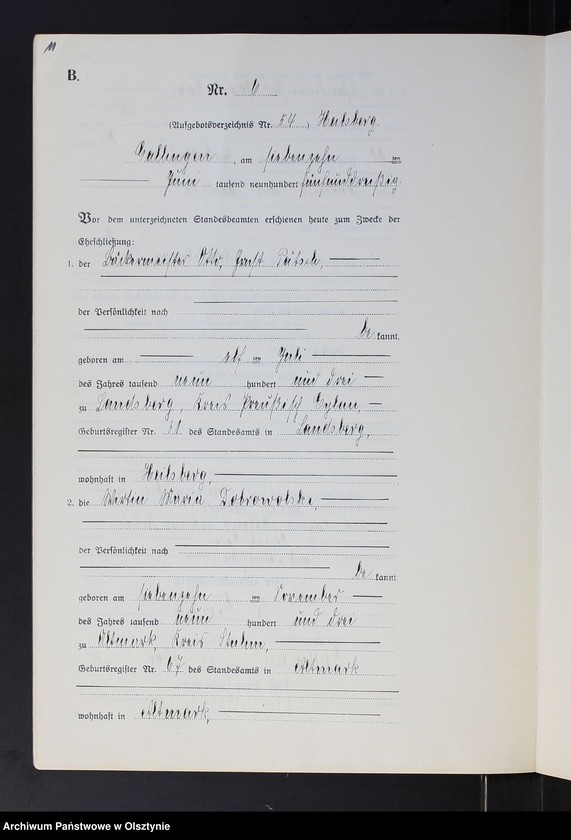 11
B.
Nr. 6
(Aufgebotsverzeichnis Nr. 54) Heilsberg.
Gallingen, am siebenzehn ten
Juni tausend neunhundert fünfunddreißig.
Vor dem unterzeichneten Standesbeamten erschienen heute zum Zwecke der
Eheschließung:
1. der Bäckermeister Otto, Ernst
der Persönlichkeit nach
be kannt,
geboren am elf ten Juli
des Jahres tausend neun hundert und drei
zu Landsberg, Kreis Preußisch Eylau,
Geburtsregister Nr. 31 des Standesamts in Landsberg,
wohnhaft in Heilsberg,
2. die Wirtin Maria Dobrowolski,
der Persönlichkeit nach
be kannt
geboren am siebenzehn ten November
des Jahres tausend neun hundert und drei
zu Altmark, Kreis Stuhm,
Geburtsregister Nr. 67 des Standesamts in Altmark
wohnhaft in Altmark,
Archiwum Państwowe w Olsztynie